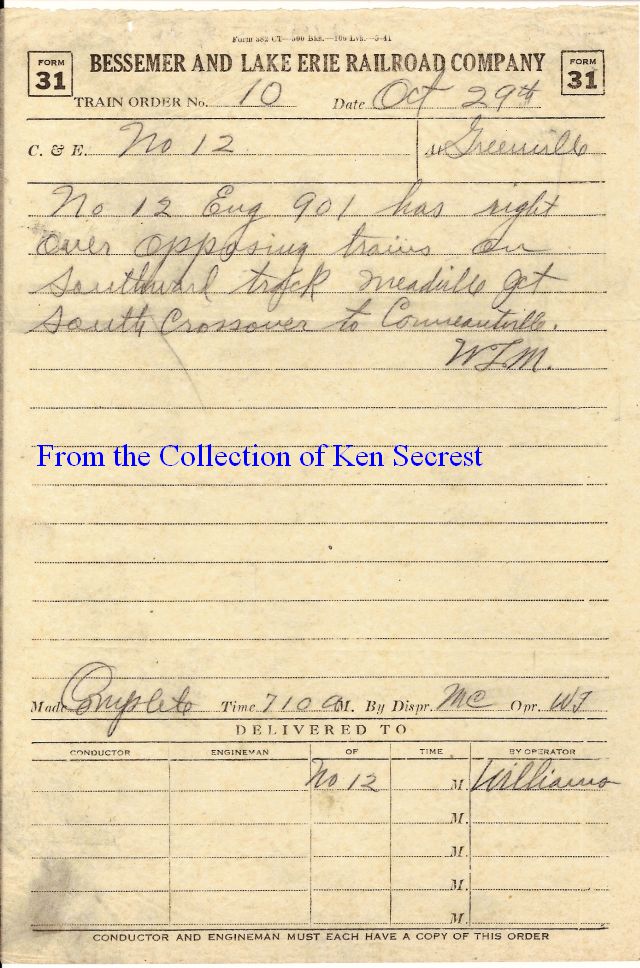 Form 582 CT—500 Bks.—100 Lvs.—5-41
FORM 31
BESSEMER AND LAKE ERIE RAILROAD COMPANY
FORM 31
TRAIN ORDER No. 10 Date Oct 29th
C. & E. No 12 At Greenville
No 12 Eng 901 has right
over opposing trains on
Southward track Meadville Jct
South Crossover to Conneautville.
From the Collection of Ken Secrest
Made Complete Time 710 a M. By Dispr. MC Opr.
DELIVERED TO
CONDUCTOR ENGINEMAN OF TIME BY OPERATOR
No 12 M. Williams
M.
M.
M.
M.
CONDUCTOR AND ENGINEMAN MUST EACH HAVE A COPY OF THIS ORDER